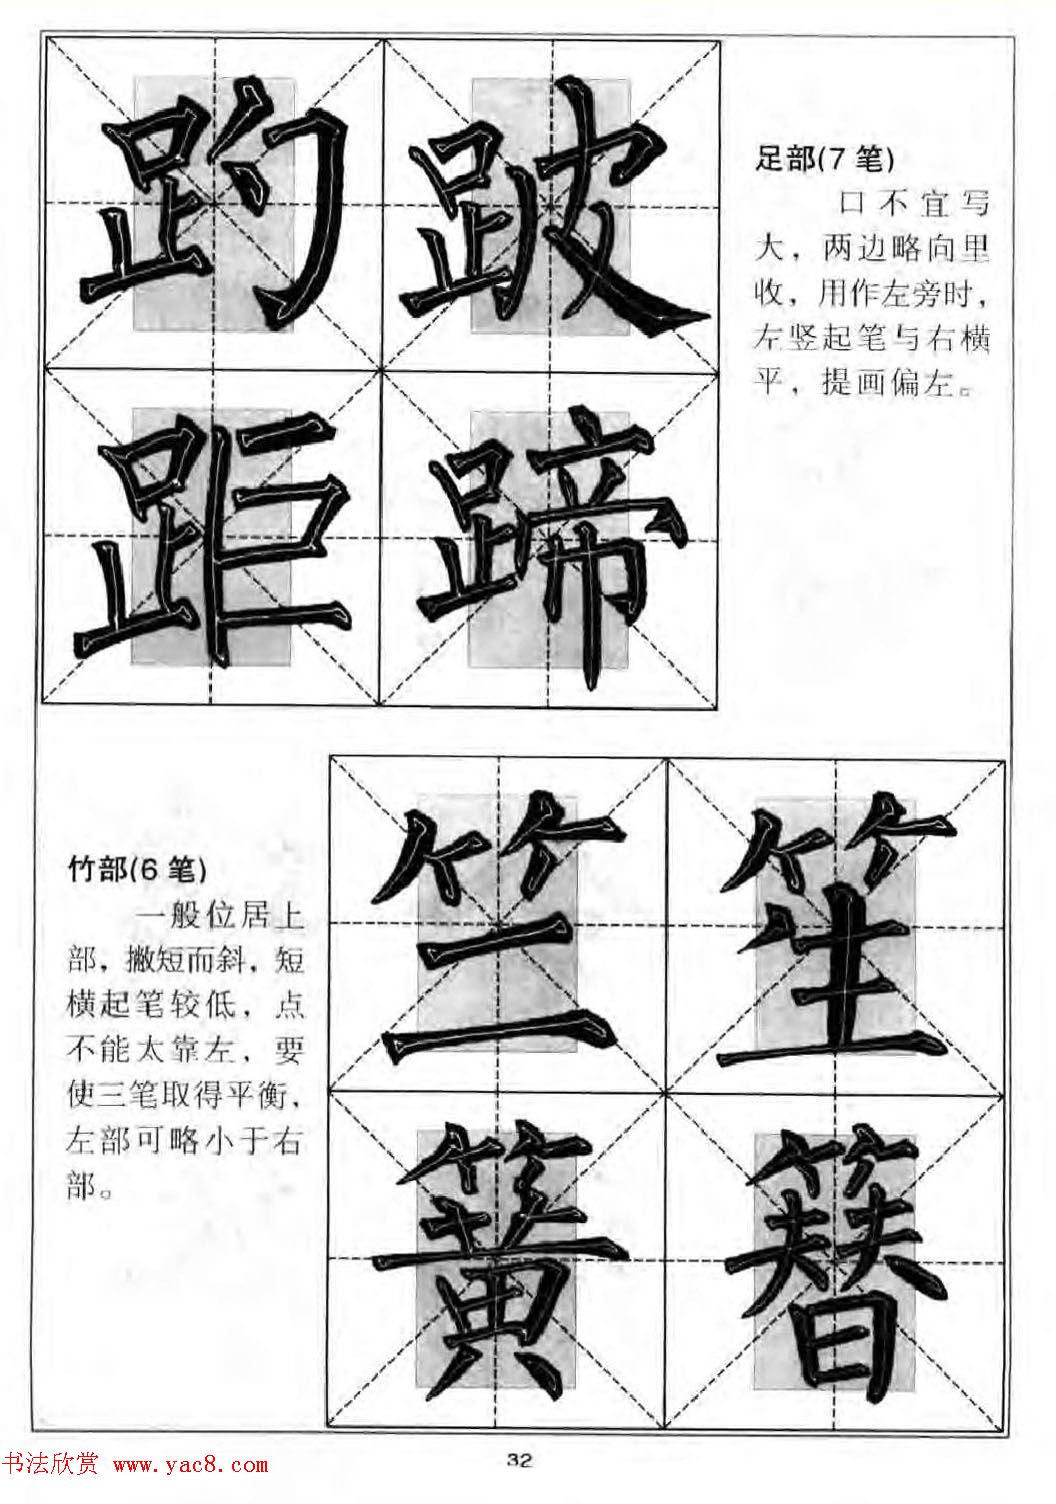 趵跛
足部(7笔)
口不宜写
大，两边略向里
收，用作左旁时，
左竖起笔与右横
平，提画偏左。
距蹄
竺笙
竹部(6笔)
一般位居上
部，撇短而斜，短
横起笔较低，点
不能太靠左，要
使三笔取得平衡，
左部可略小于右
部。
簧簪
32
书法欣赏 www.yac8.com